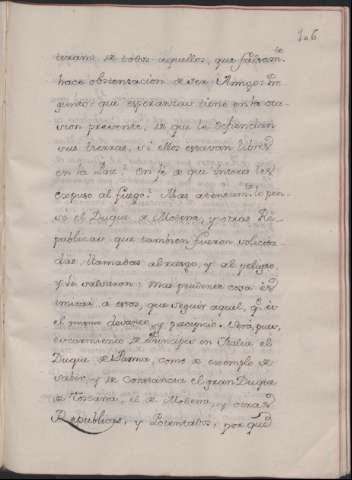 106
terano de todos aquellos, que falsam.te
hace obstentacion de ser Amigo: Pre
gunto: que esperanzas tiene en la oca
sion presente, de que le defiendan
sus tierras, si ellos estavan libres
en la Paz? En fe de que interes le
expuso al fuego? Mas atentam.te lo pen
só el Duque de Modena, y otras Re
publicas, que tambien fueron solicita
das, llamadas al riesgo, y al peligro,
y se valieron: mas prudente cosa es
imitar a estos, que seguir aquel, q.e es
el mismo devaneo, y precipicio. Será, pues,
escarmiento de Principes en Italia el
Duque de Parma, como de exemplo de
saber, y de constancia el gran Duque
de Toscana, el de Modena, y otras
Republicas, y Potentados, por que